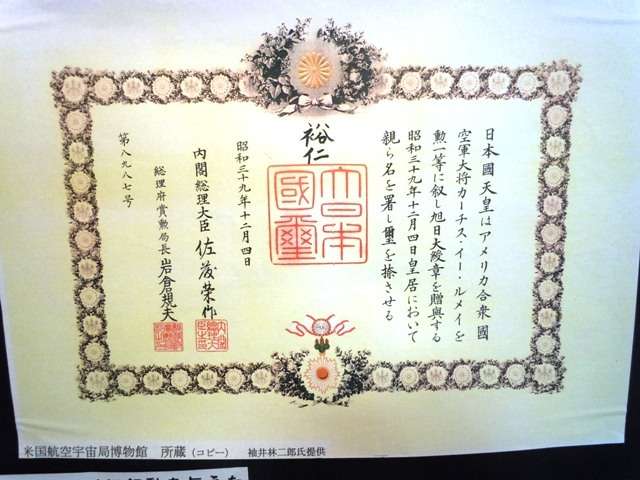 日本國天皇はアメリカ合衆國
空軍大将カーチス・イー・ルメイを
勲一等に叙し旭日大綬章を贈與する
昭和三十九年十二月四日皇居において
親ら名を署し璽を捺させる
裕仁
大日本
國璽
昭和三十九年十二月四日
内閣総理大臣 佐藤榮作
総理府賞勲局長 岩倉規夫
第八九八七号
米国航空宇宙局博物館 所蔵（コピー） 袖井林二郎氏提供